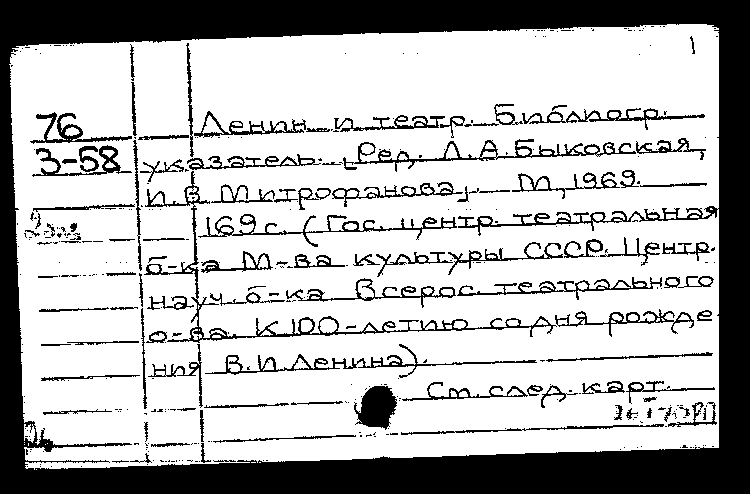 1
76 Ленин и театр. Библиогр.
3-58 указатель. [Ред. Л.А.Быковская,
И.В.Митрофанова]. М, 1969.
169 с. (Гос. центр. театральная
б-ка М-ва культуры СССР. Центр.
науч. б-ка Всерос. театрального
о-ва. К 100-летию со дня рожде
ния В.И.Ленина).
См. след. карт.